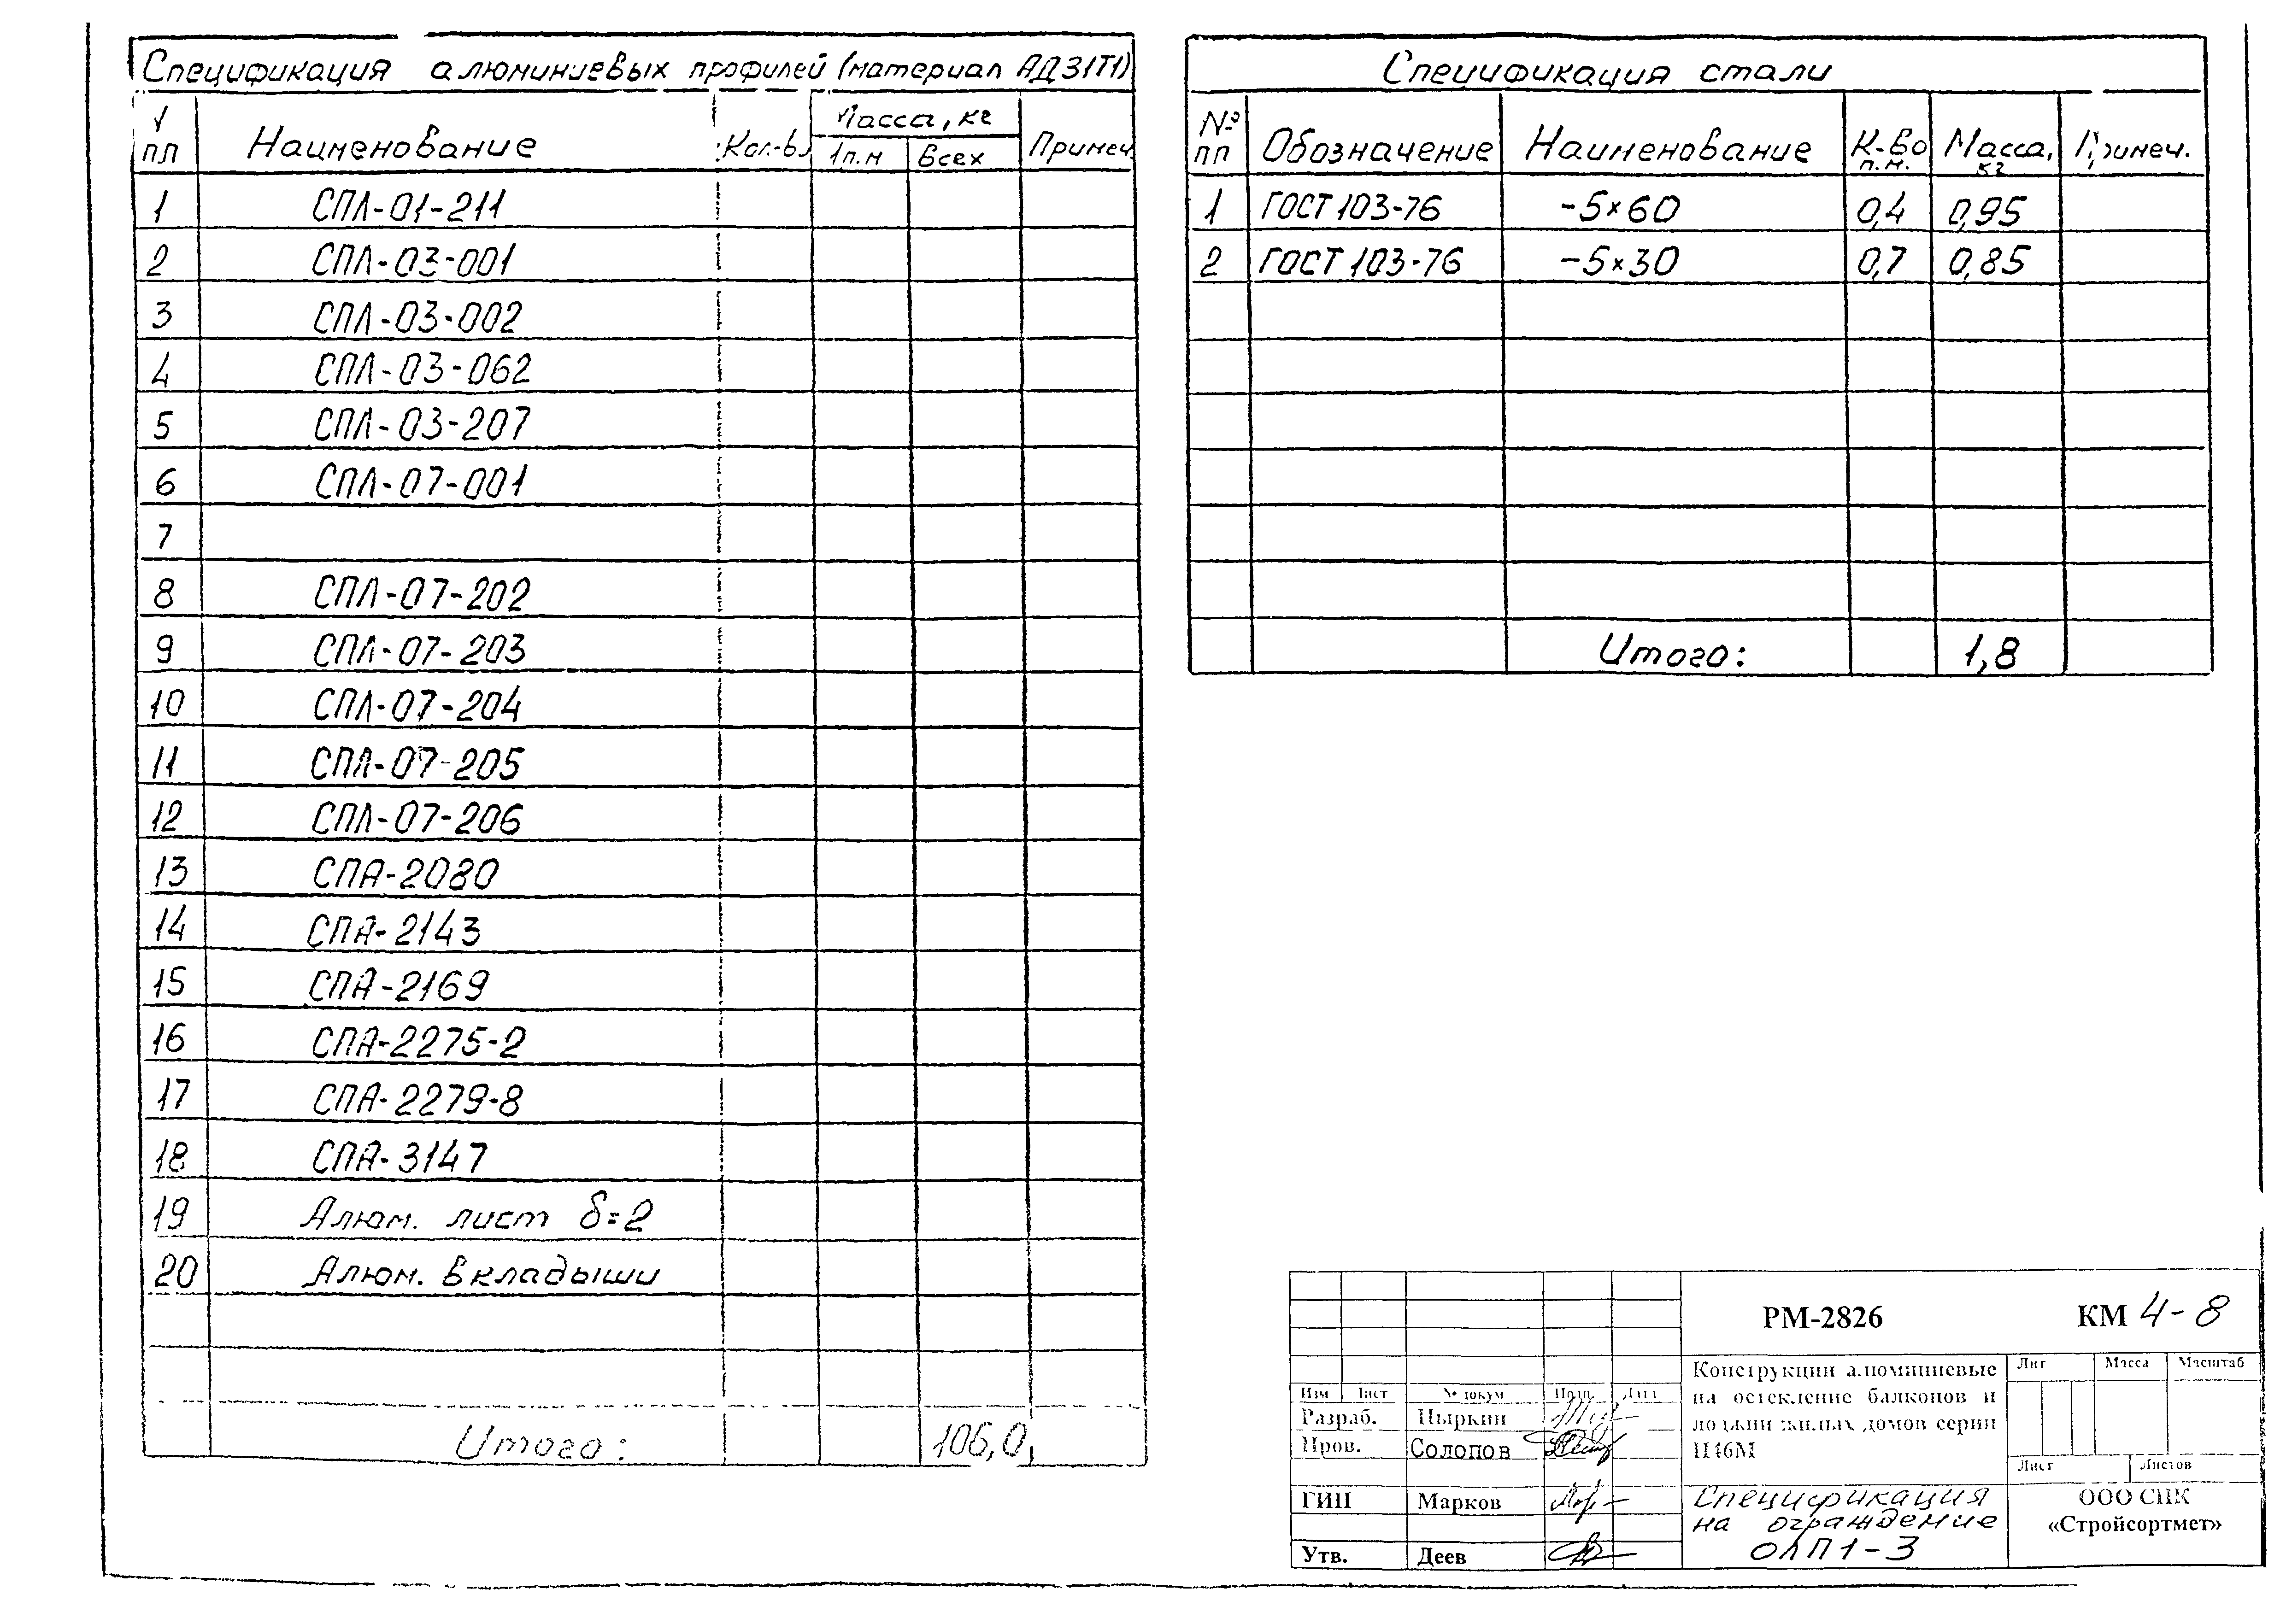 Спецификация алюминиевых профилей (материал АД31Т1)
пп Наименование Кол-во Масса, кг Примеч.
1п.м Всех
1 СПЛ-01-211
2 СПЛ-03-001
3 СПЛ-03-002
4 СПЛ-03-062
5 СПЛ-03-207
6 СПЛ-07-001
7
8 СПЛ-07-202
9 СПЛ-07-203
10 СПЛ-07-204
11 СПЛ-07-205
12 СПЛ-07-206
13 СПА-2080
14 СПА-2143
15 СПА-2169
16 СПА-2275-2
17 СПА-2279-8
18 СПА-3147
19 Алюм. лист δ=2
20 Алюм. вкладыши
Итого: 106,0
Спецификация стали
№ пп Обозначение Наименование К-во п.м. Масса, кг Примеч.
1 ГОСТ 103-76 -5×60 0,4 0,95
2 ГОСТ 103-76 -5×30 0,7 0,85
Итого: 1,8
РМ-2826 КМ 4-8
Конструкции алюминиевые
на остекление балконов и
лоджии жилых домов серии
П46М
Лит Масса Масштаб
Лист Листов
Изм Лист № докум Подп. Дата
Разраб. Цыркин
Пров. Солопов
ГИП Марков
Утв. Деев
Спецификация
на ограждение
ОЛП1-3
ООО СПК
«Стройсортмет»